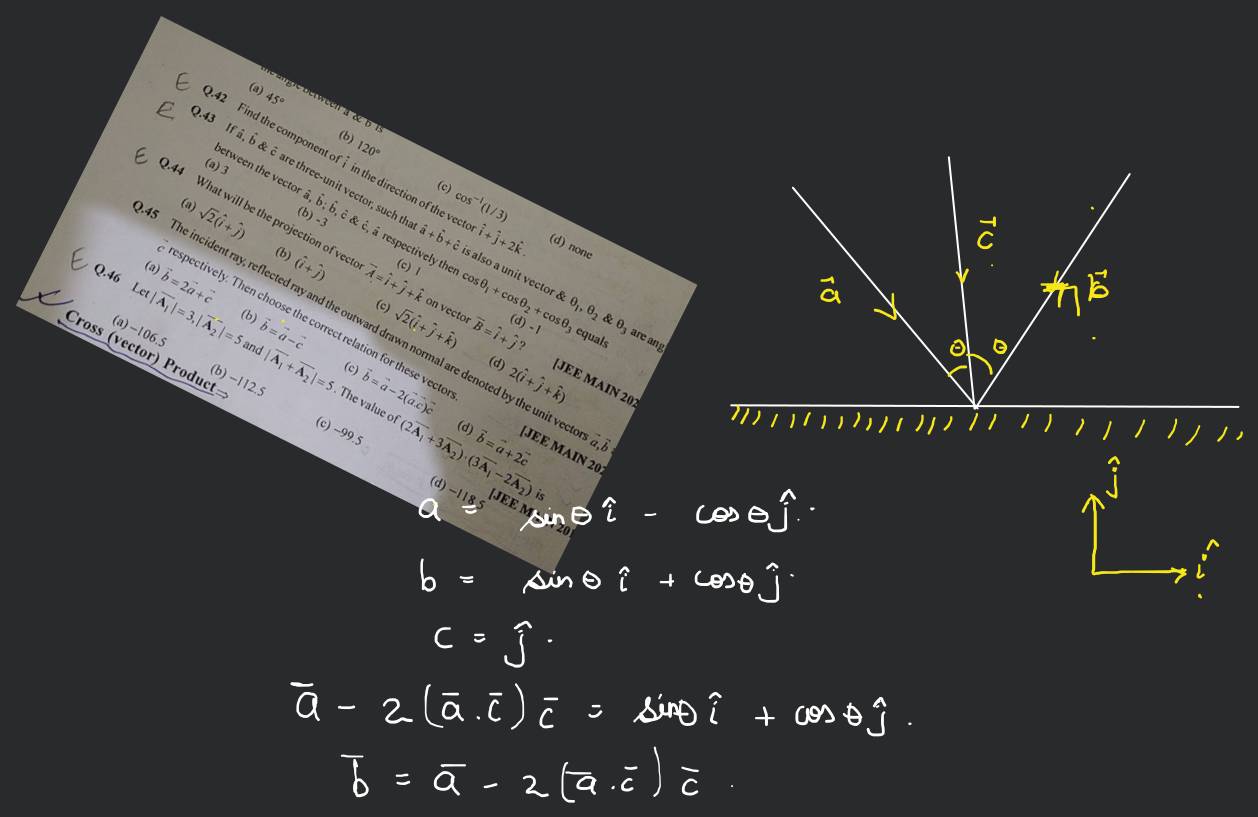 the angle between a & b is
(a) 45° (b) 120° (c) cos⁻¹(1/3) (d) none
E Q.42 Find the component of î in the direction of the vector î + ĵ + 2k̂.
E Q.43 If â, b̂ & ĉ are three-unit vector, such that â + b̂ + ĉ is also a unit vector & θ₁, θ₂ & θ₃ are ang
between the vector â, b̂; b̂, ĉ & ĉ, â respectively then cos θ₁ + cos θ₂ + cos θ₃ equals
(a) 3 (b) -3 (c) 1 (d) -1
E Q.44 What will be the projection of vector A⃗ = î + ĵ + k̂ on vector B⃗ = î + ĵ?
[JEE MAIN 202
(a) √2(î + ĵ) (b) (î + ĵ) (c) √2(î + ĵ + k̂) (d) 2(î + ĵ + k̂)
Q.45 The incident ray, reflected ray and the outward drawn normal are denoted by the unit vectors a⃗, b⃗
c⃗ respectively. Then choose the correct relation for these vectors.
[JEE MAIN 202
(a) b⃗ = 2a⃗ + c⃗ (b) b⃗ = a⃗ − c⃗ (c) b⃗ = a⃗ − 2(a⃗.c⃗)c⃗ (d) b⃗ = a⃗ + 2c⃗
E Q.46 Let |A₁⃗| = 3, |A₂⃗| = 5 and |A₁⃗ + A₂⃗| = 5. The value of (2A₁⃗ + 3A₂⃗).(3A₁⃗ − 2A₂⃗) is
(a) −106.5 (b) −112.5 (c) −99.5 (d) −118.5
Cross (vector) Product⇒
a⃗
c⃗
b⃗
θ θ
ĵ
î
a = sinθ î - cosθ ĵ.
b = sinθ î + cosθ ĵ.
c = ĵ.
a̅ - 2(a̅.c̅)c̅ = sinθ î + cosθ ĵ.
b̅ = a̅ - 2(a̅.c̅)c̅.